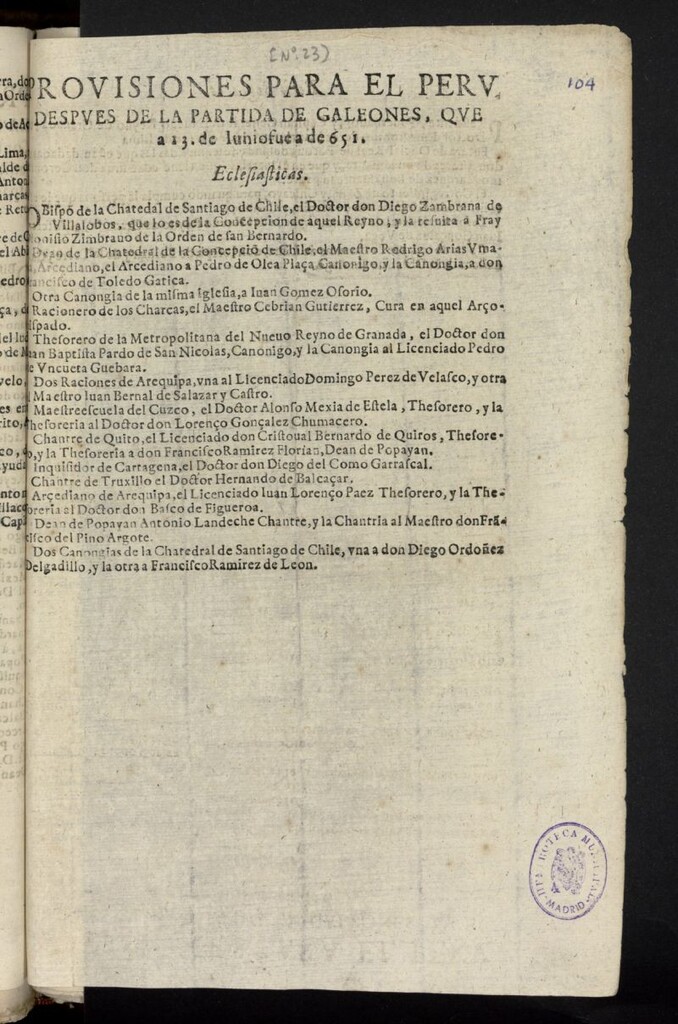 [Nº. 23)
104
ROVISIONES PARA EL PERV,
DESPVES DE LA PARTIDA DE GALEONES, QVE
a 13. de Iunio fue a de 651.
Eclesiasticas.
OBispo de la Chatedal de Santiago de Chile, el Doctor don Diego Zambrana de
Villalobos, que lo es de la Concepcion de aquel Reyno, y la resulta a Fray
onisio Zimbrano de la Orden de san Bernardo.
Dean de la Chatedral de la Concepció de Chile, el Maestro Rodrigo Arias Vma-
Arcediano, el Arcediano a Pedro de Olea Plaça, Canonigo, y la Canongia, a don
ancisco de Toledo Gatica.
Otra Canongia de la misma iglesia, a Iuan Gomez Osorio.
Racionero de los Charcas, el Maestro Cebrian Gutierrez, Cura en aquel Arço-
ispado.
Thesorero de la Metropolitana del Nueuo Reyno de Granada, el Doctor don
an Baptista Pardo de San Nicolas, Canonigo, y la Canongia al Licenciado Pedro
e Vncueta Guebara.
Dos Raciones de Arequipa, vna al Licenciado Domingo Perez de Velasco, y otra
Maestro Iuan Bernal de Salazar y Castro.
Maestreescuela del Cuzco, el Doctor Alonso Mexia de Estela, Thesorero, y la
hesoreria al Doctor don Lorenço Gonçalez Chumacero.
Chantre de Quito, el Licenciado don Cristoual Bernardo de Quiros, Thesore-
o, y la Thesoreria a don Francisco Ramirez Florian, Dean de Popayan.
Inquisidor de Cartagena, el Doctor don Diego del Corno Garrascal.
Chantre de Truxillo el Doctor Hernando de Balcaçar.
Arçediano de Arequipa, el Licenciado Iuan Lorenço Paez Thesorero, y la The-
oreria al Doctor don Basco de Figueroa.
Dean de Popayan Antonio Landeche Chantre, y la Chantria al Maestro don Frã-
cisco del Pino Argote.
Dos Canongias de la Chatedral de Santiago de Chile, vna a don Diego Ordoñez
Delgadillo, y la otra a Francisco Ramirez de Leon.
HEMEROTECA MUNICIPAL
MADRID